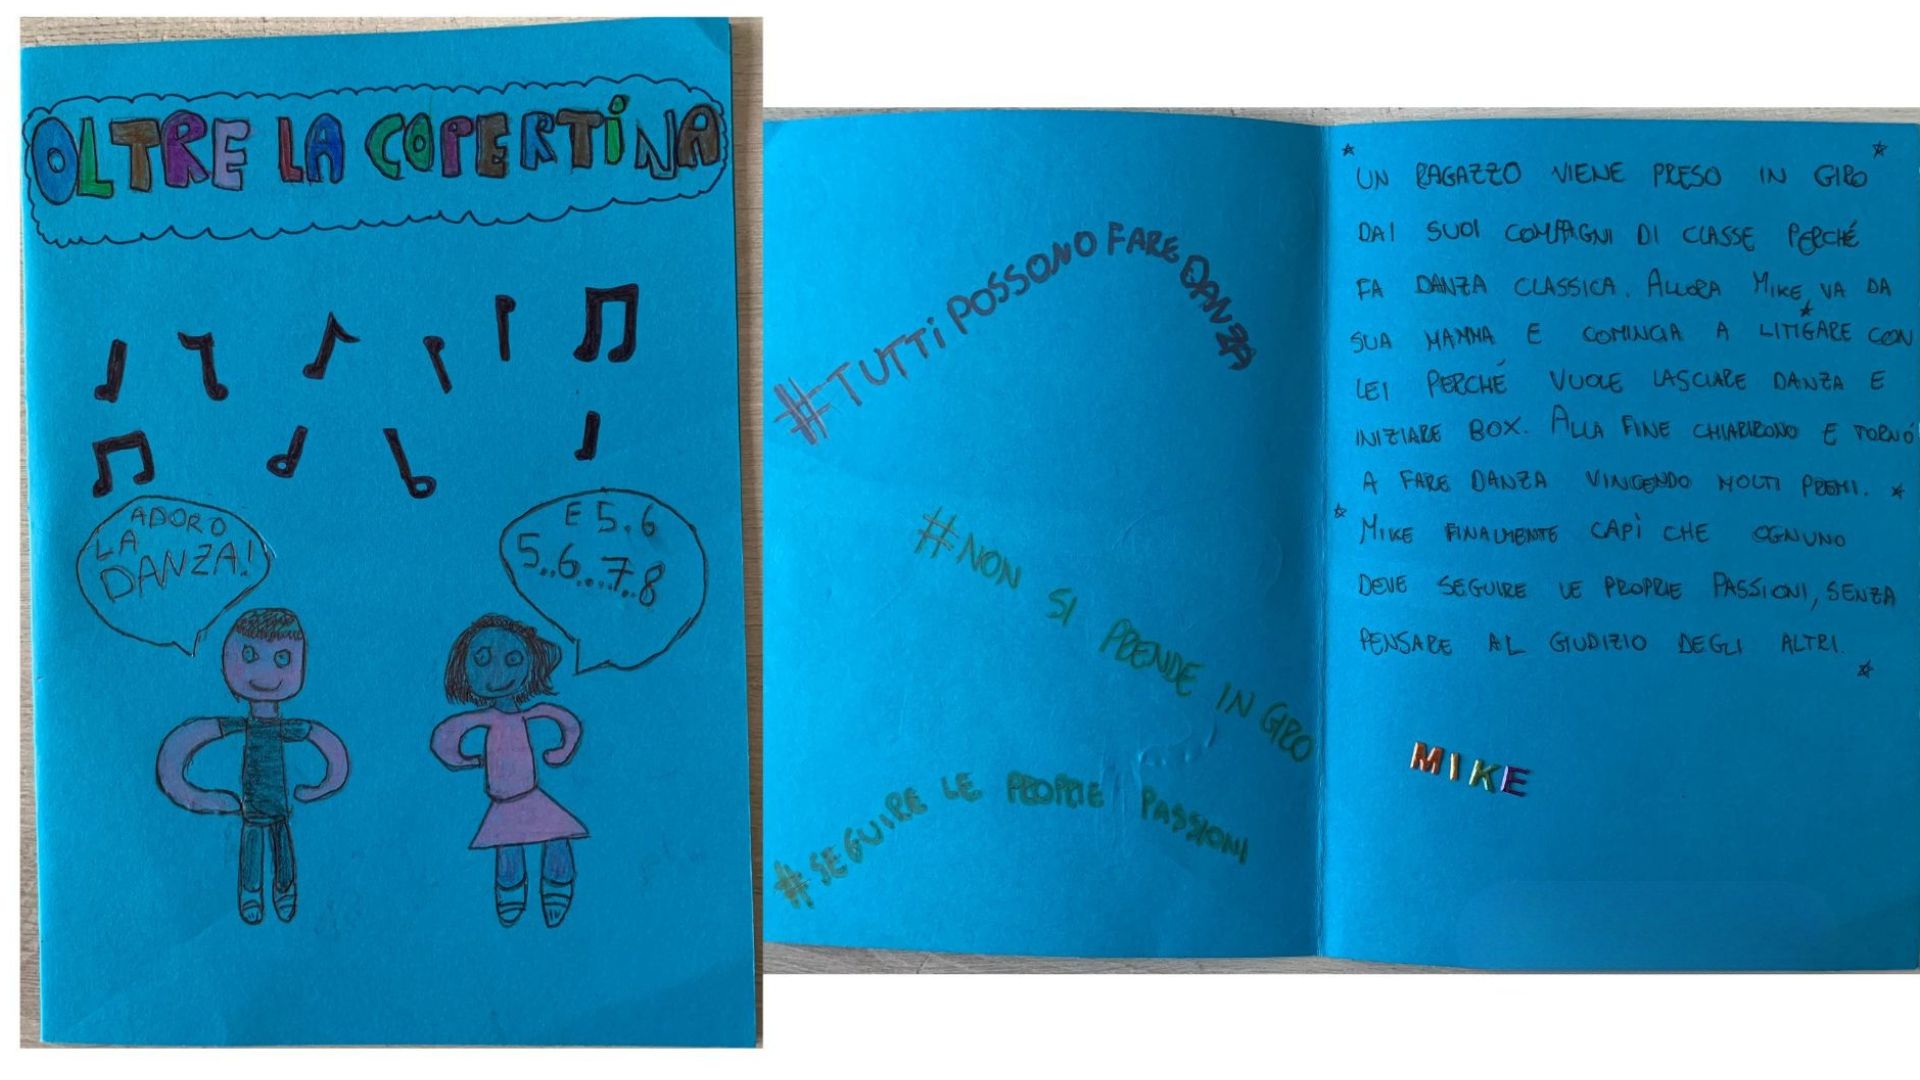 OLTRE LA COPERTINA
ADORO
LA
DANZA!
E 5,6
5..6...7..8
#TUTTi POSSONO FARE DANZA
#NON SI PRENDE IN GIRO
#SEGUIRE LE PROPRIE PASSIONI
UN RAGAZZO VIENE PRESO IN GIRO
DAI SUOI COMPAGNI DI CLASSE PERCHÉ
FA DANZA CLASSICA. ALLORA MIKE VA DA
SUA MAMMA E COMINCIA A LITIGARE CON
LEI PERCHÉ VUOLE LASCIARE DANZA E
INIZIARE BOX. ALLA FINE CHIARIRONO E TORNÓ
A FARE DANZA VINCENDO MOLTI PREMI.
MIKE FINALMENTE CAPÌ CHE OGNUNO
DEVE SEGUIRE LE PROPRIE PASSIONI, SENZA
PENSARE AL GIUDIZIO DEGLI ALTRI.
MIKE